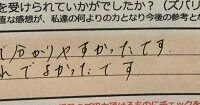 を受けられていかがでしたか？（ズバリ
直な感想が、私達の何よりの力となり今後の参考と
分かりやすかったです
れてよかったです